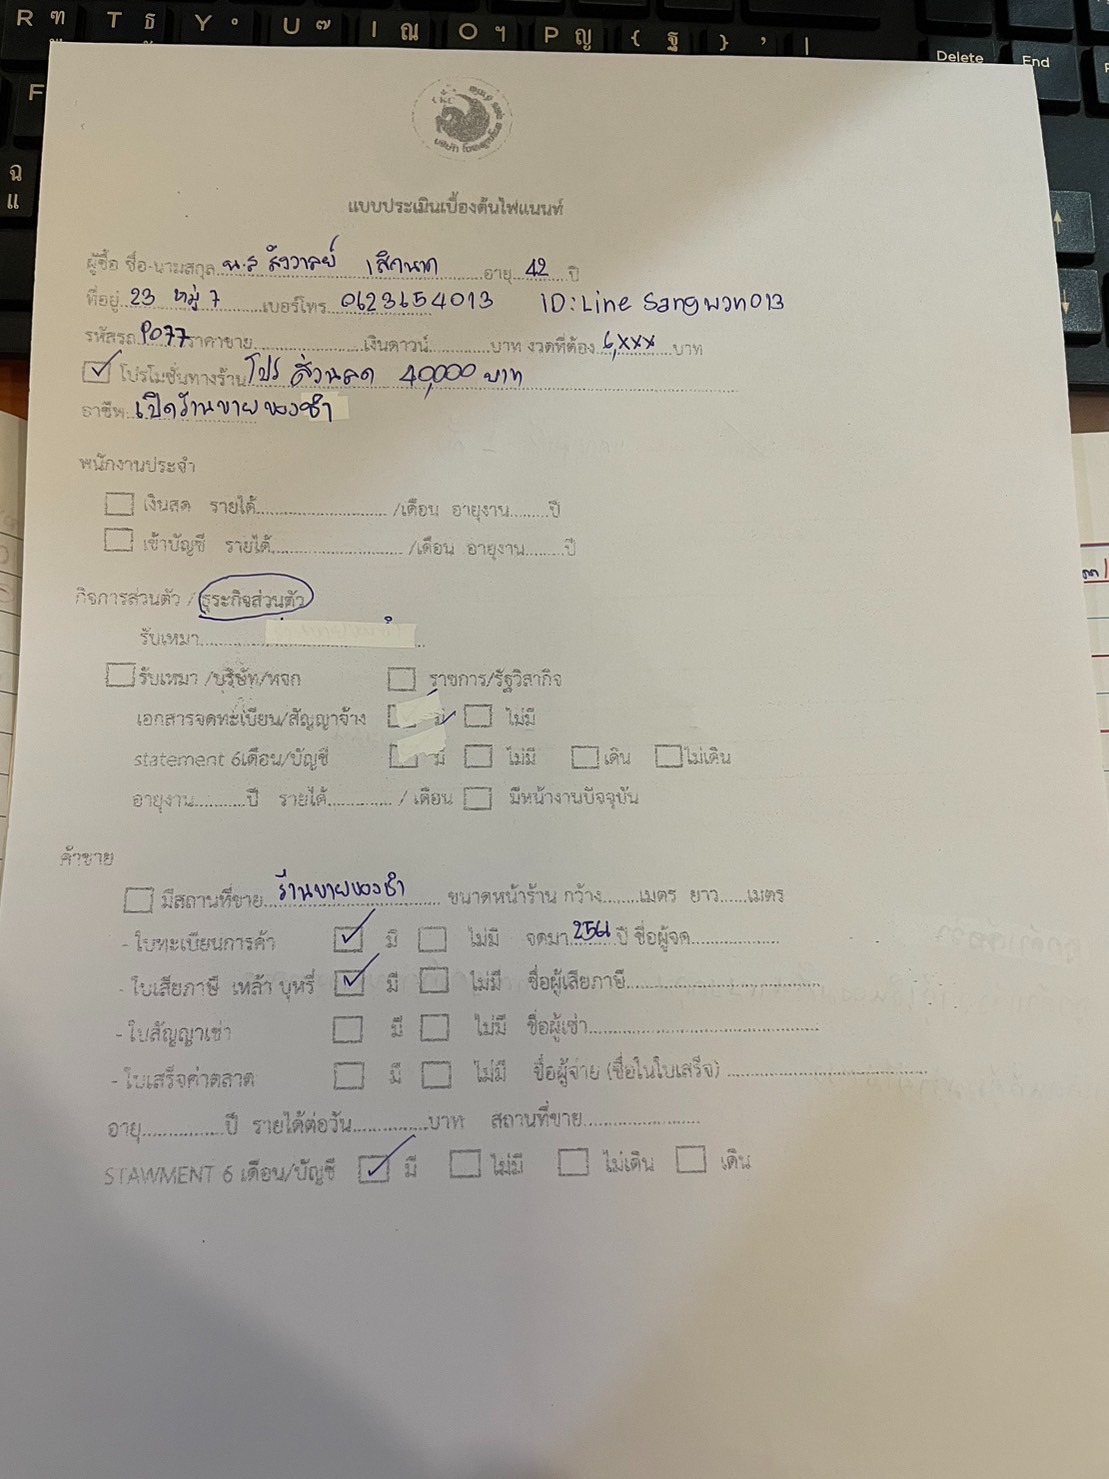 R ฑ T ธ Y ° U ๊ I ณ O ฯ P ญ { ฐ } , |
Delete End
F
ฉ
แ
แบบประเมินเบื้องต้นไฟแนนท์
ผู้ซื้อ ชื่อ-นามสกุล น.ส สังวาลย์ เสิกนาค อายุ 42 ปี
ที่อยู่ 23 หมู่ 7 เบอร์โทร 0623654013 ID:Line Sangwan013
รหัสรถ P077 ราคาขาย เงินดาวน์ บาท งวดที่ต้อง 6,xxx บาท
โปรโมชั่นทางร้าน โปร ส่วนลด 40,000 บาท
อาชีพ เปิดร้านขายของชำ
พนักงานประจำ
เงินสด รายได้ /เดือน อายุงาน ปี
เข้าบัญชี รายได้ /เดือน อายุงาน ปี
กิจการส่วนตัว / ธุระกิจส่วนตัว
รับเหมา
รับเหมา /บริษัท/หจก ราชการ/รัฐวิสากิจ
เอกสารจดทะเบียน/สัญญาจ้าง มี ไม่มี
statement 6เดือน/บัญชี มี ไม่มี เดิน ไม่เดิน
อายุงาน ปี รายได้ / เดือน มีหน้างานปัจจุบัน
ค้าขาย
มีสถานที่ขาย ร้านขายของชำ ขนาดหน้าร้าน กว้าง เมตร ยาว เมตร
- ใบทะเบียนการค้า มี ไม่มี จดมา ปี ชื่อผู้จด
- ใบเสียภาษี เหล้า บุหรี่ มี ไม่มี ชื่อผู้เสียภาษี
- ใบสัญญาเช่า มี ไม่มี ชื่อผู้เช่า
- ใบเสร็จค่าตลาด มี ไม่มี ชื่อผู้จ่าย (ชื่อในใบเสร็จ)
อายุ ปี รายได้ต่อวัน บาท สถานที่ขาย
STAWMENT 6 เดือน/บัญชี มี ไม่มี ไม่เดิน เดิน